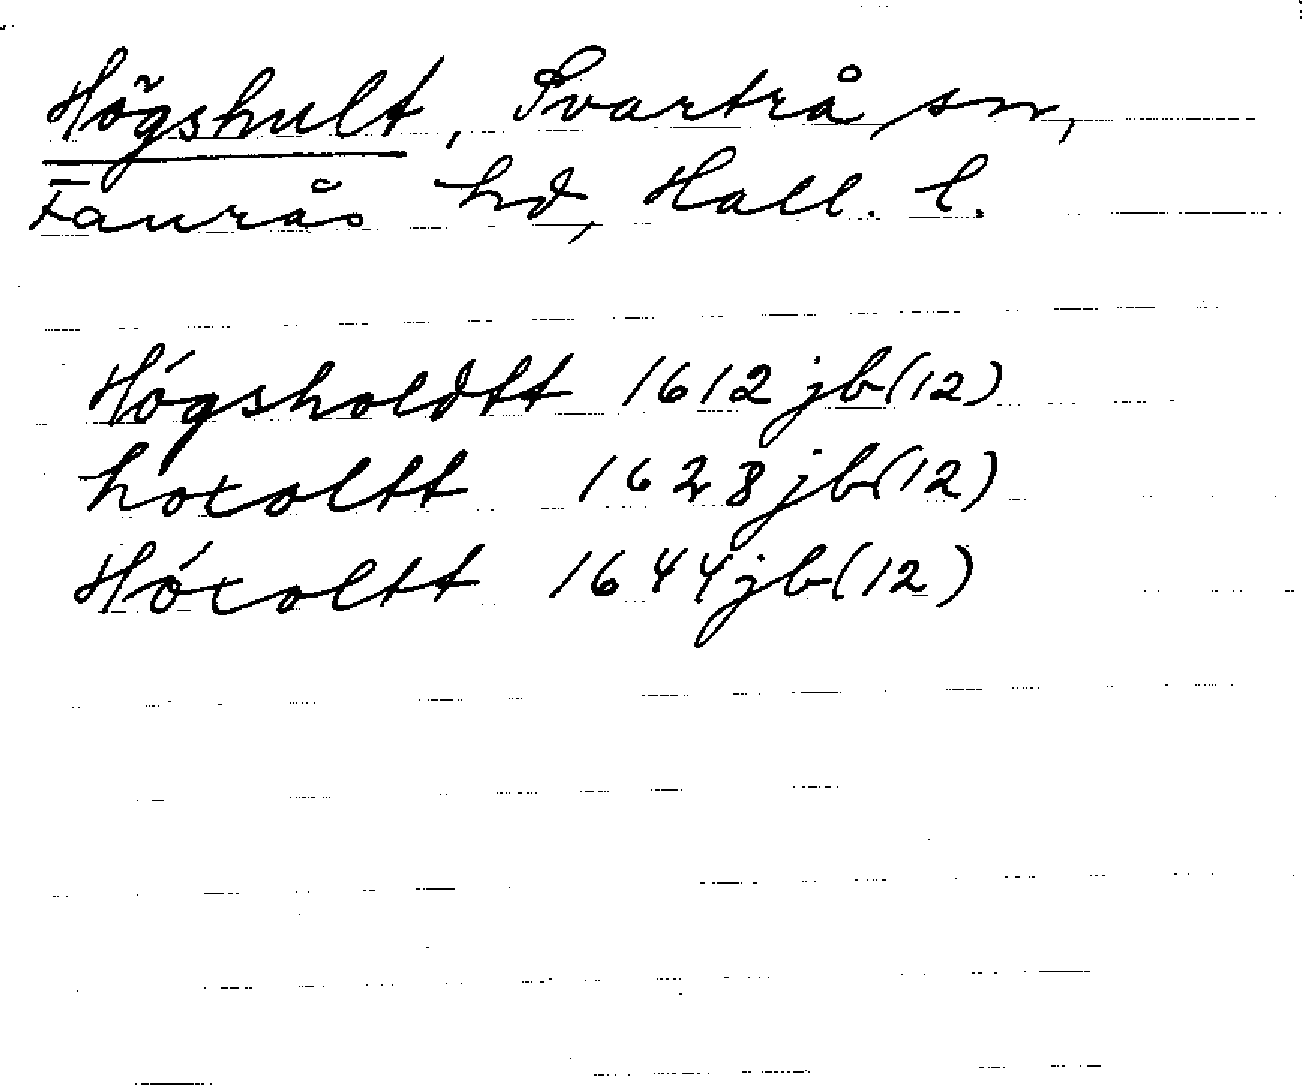 Högshult, Svartrå sn,
Faurås hd, Hall. l.
Hógsholdtt 1612 jb(12)
hoxoltt 1628 jb(12)
Hóxoltt 1644 jb(12)